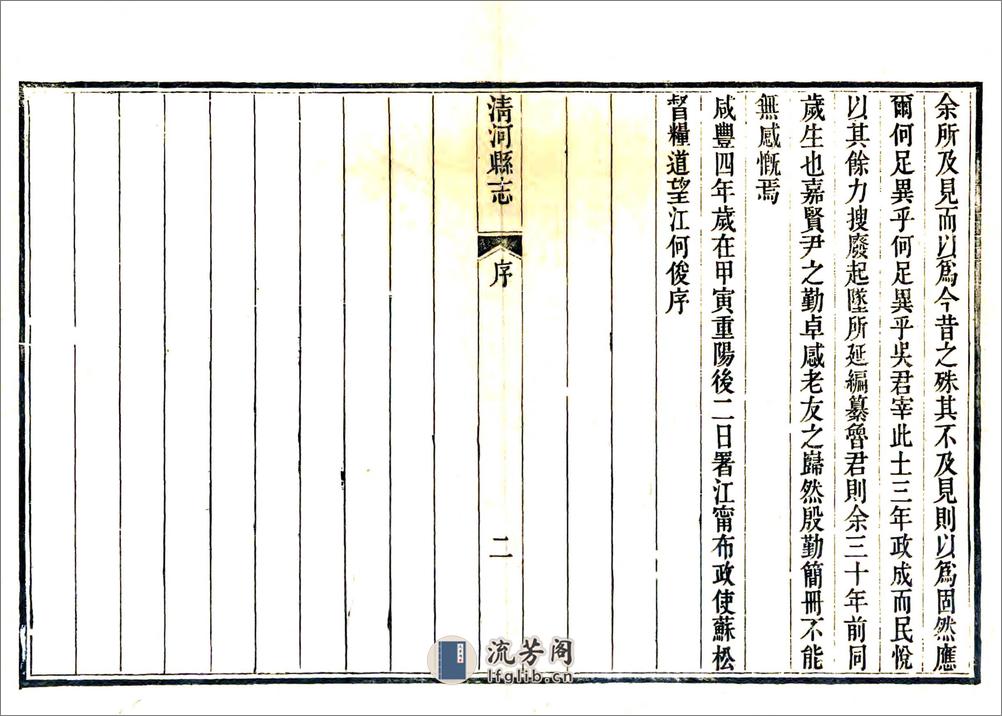 余所及見而以爲今昔之殊其不及見則以爲固然應
爾何足異乎何足異乎吳君宰此土三年政成而民悅
以其餘力搜廢起墜所延編纂魯君則余三十年前同
歲生也嘉賢尹之勤卓感老友之巋然殷勤簡冊不能
無感慨焉
咸豐四年歲在甲寅重陽後二日署江甯布政使蘇松
督糧道望江何俊序
清河縣志
序
二
流芳阁
lfglib.cn